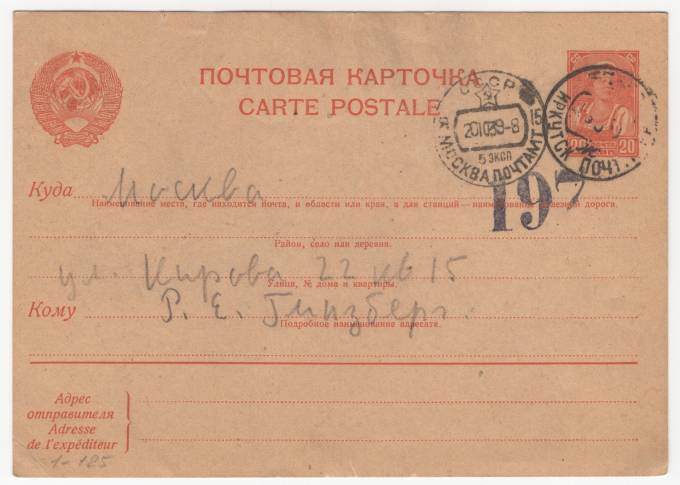 ПОЧТОВАЯ КАРТОЧКА
CARTE POSTALE
СССР
20 10 39-8
15
5 ЭКСП
МОСКВА ПОЧТАМТ
ИРКУТСК ПОЧТ
20
197
Куда Москва
Наименование места, где находится почта, и области или края, а для станций – наименование железной дороги.
Район, село или деревня.
ул. Кирова 22 кв 15
Улица, № дома и квартиры.
Кому Р. Е. Гинзберг.
Подробное наименование адресата.
Адрес
отправителя
Adresse
de l'expéditeur
1-125